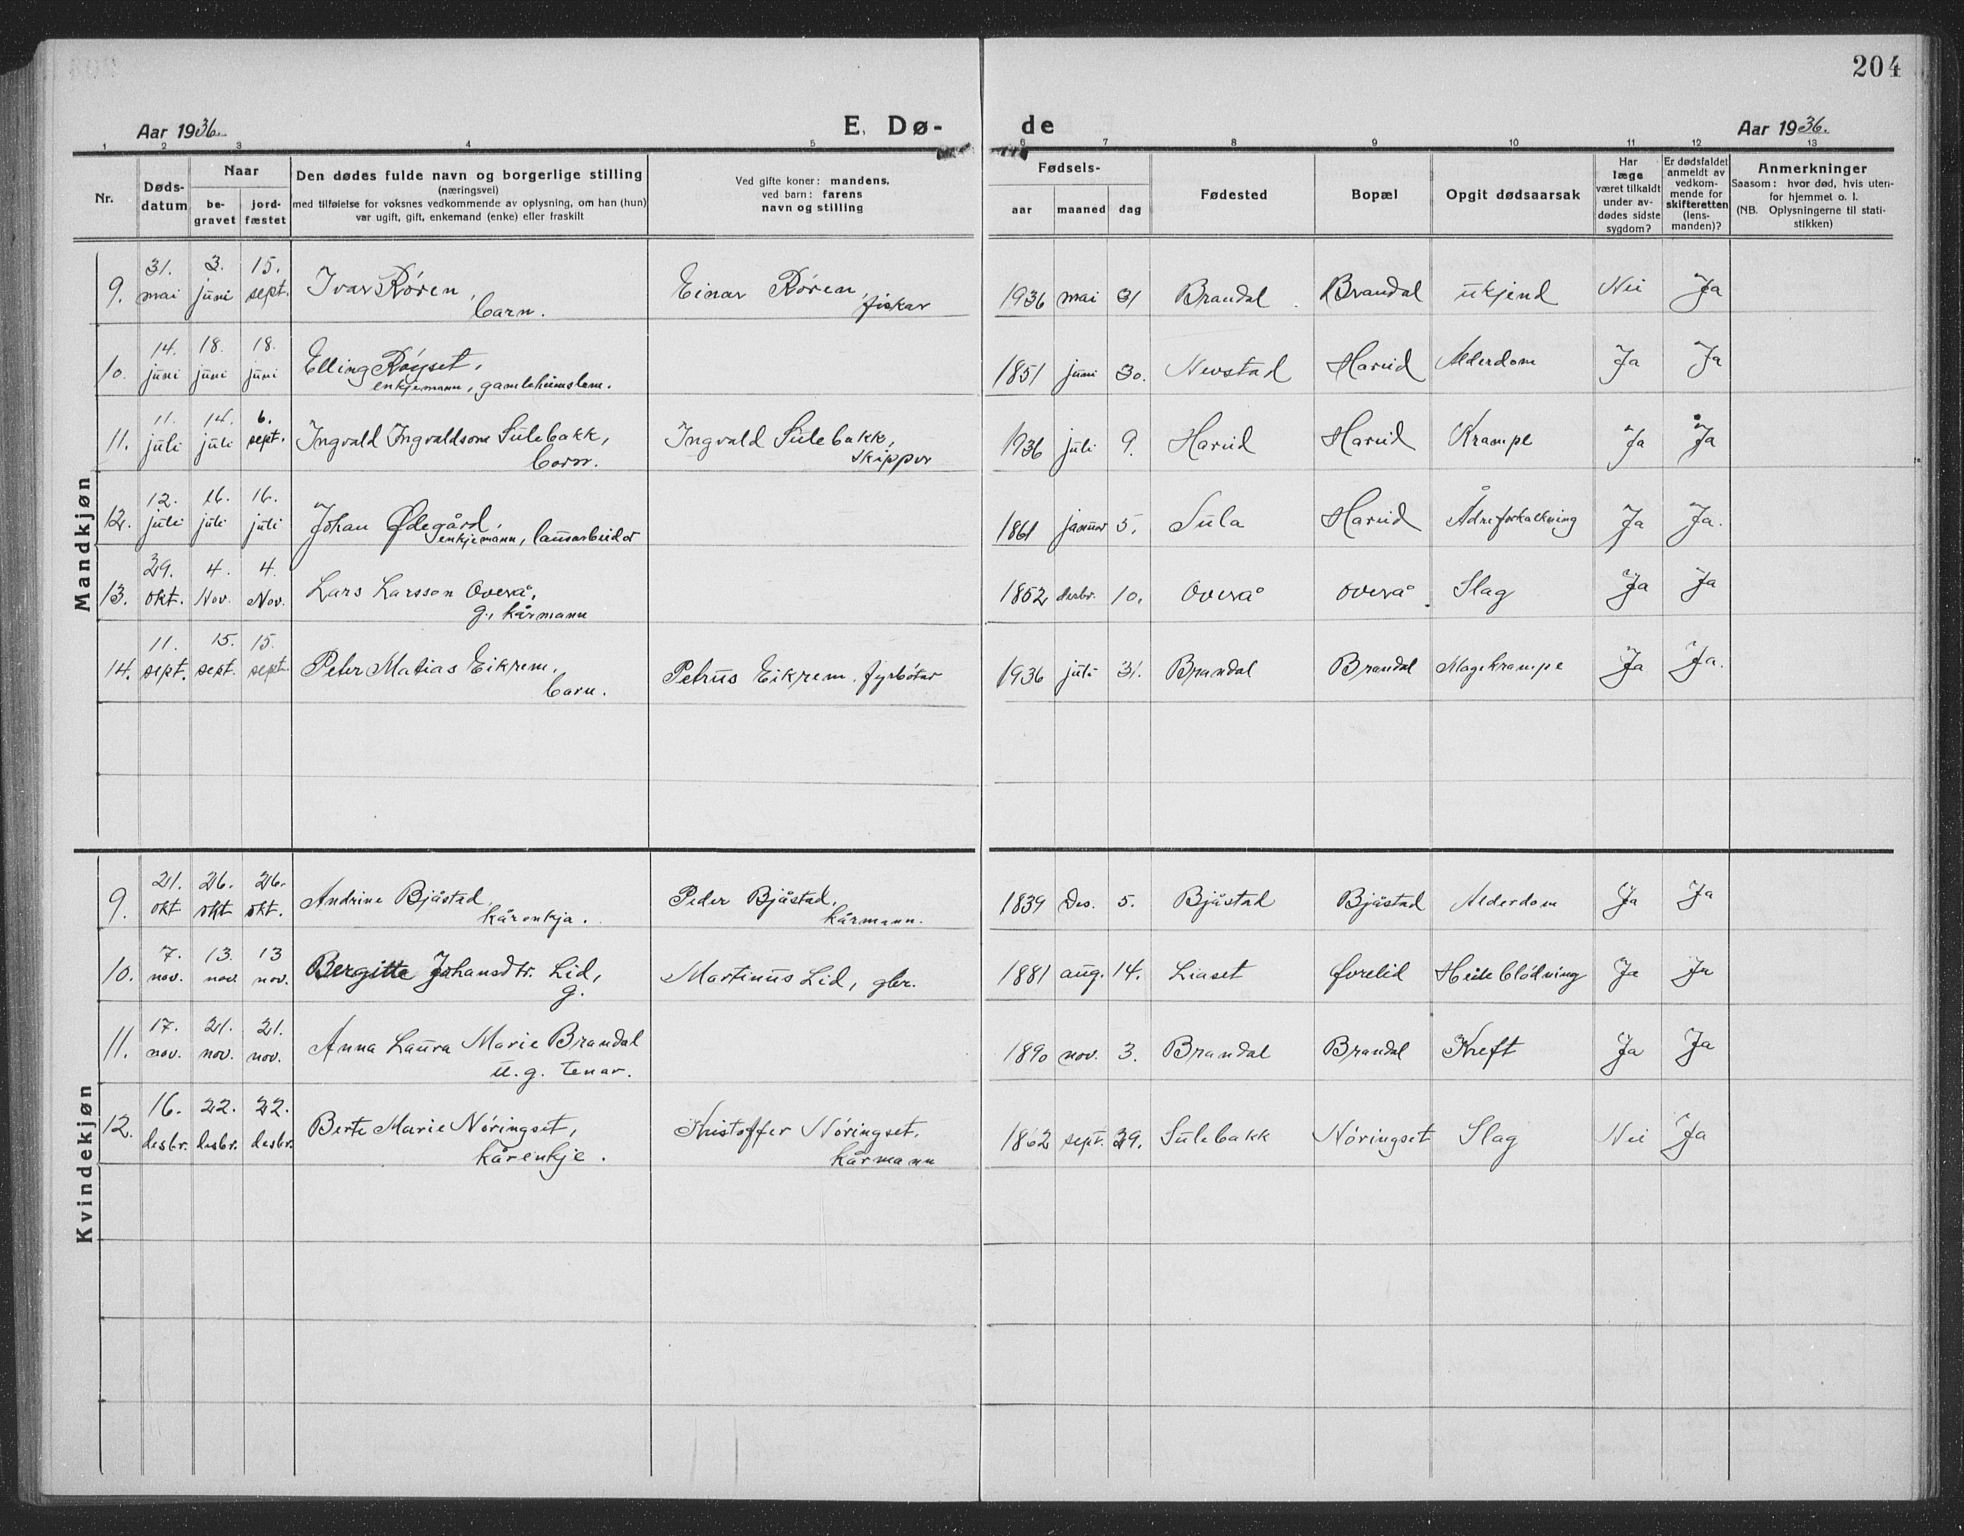 204
Aar 1936. E. Dø- de Aar 1936.
1 2 3 4 5 6 7 8 9 10 11 12 13
Nr. Døds-datum Naar begravet jordfæstet Den dødes fulde navn og borgerlige stilling (næringsvei) med tilføielse for voksnes vedkommende av oplysning, om han (hun) var ugift, gift, enkemand (enke) eller fraskilt Ved gifte koner: mandens, ved barn: farens navn og stilling Fødsels- aar maaned dag Fødested Bopæl Opgit dødsaarsak Har læge været tilkaldt under avdødes sidste sygdom? Er dødsfaldet anmeldt av vedkommende for skifteretten (lensmanden)? Anmerkninger Saasom: hvor død, hvis utenfor hjemmet o. l. (NB. Oplysningerne til statistikken)
Mandkjøn
9. 31. mai 3. juni 15. sept. Ivar Røren, barn. Einar Røren, fiskar 1936 mai 31 Brandal Brandal ukjend Nei Ja
10. 14. juni 18. juni 18. juni Elling Røyset, enkjemann, gamleheimslem. 1851 juni 30. Nevstad Hareid Alderdom Ja Ja
11. 11. juli 14. juli 6. sept. Ingvald Ingvaldson Sulebakk, barn. Ingvald Sulebakk, skipper 1936 juli 9. Hareid Hareid Krampe Ja Ja
12. 12. juli 16. juli 16. juli Johan Ødegård, enkjemann, lausarbeidar 1861 januar 5. Sula Hareid Åreforkalkning Ja Ja.
13. 29. okt. 4. Nov. 4. Nov. Lars Larsson Overå, g., kårmann 1852 desbr. 10. Overå Overå Slag Ja Ja
14. 11. sept. 15. sept. 15. sept. Peter Matias Eikrem, barn. Petrus Eikrem, fyrbøtar 1936 juli 31. Brandal Brandal Magekrampe Ja Ja.
Kvindekjøn
9. 21. okt 26. okt 26. okt. Andrine Bjåstad, kårenkja. Peder Bjåstad, kårmann. 1839 Des. 5. Bjåstad Bjåstad Alderdom Ja Ja
10. 7. nov. 13. nov. 13 nov. Bergitte Johansdtr. Lid, g. Martinus Lid, gbr. 1881 aug. 14. Liaset Øvrelid Heileblødning Ja Ja
11. 17. nov. 21. nov. 21. nov. Anna Laura Marie Brandal u. g. tenar. 1890 nov. 3. Brandal Brandal Kreft Ja Ja
12. 16. desbr. 22. desbr. 22. desbr. Berte Marie Nøringset, kårenkje. Kristoffer Nøringset, kårmann 1862 sept. 29. Sulebakk Nøringset Slag Nei Ja